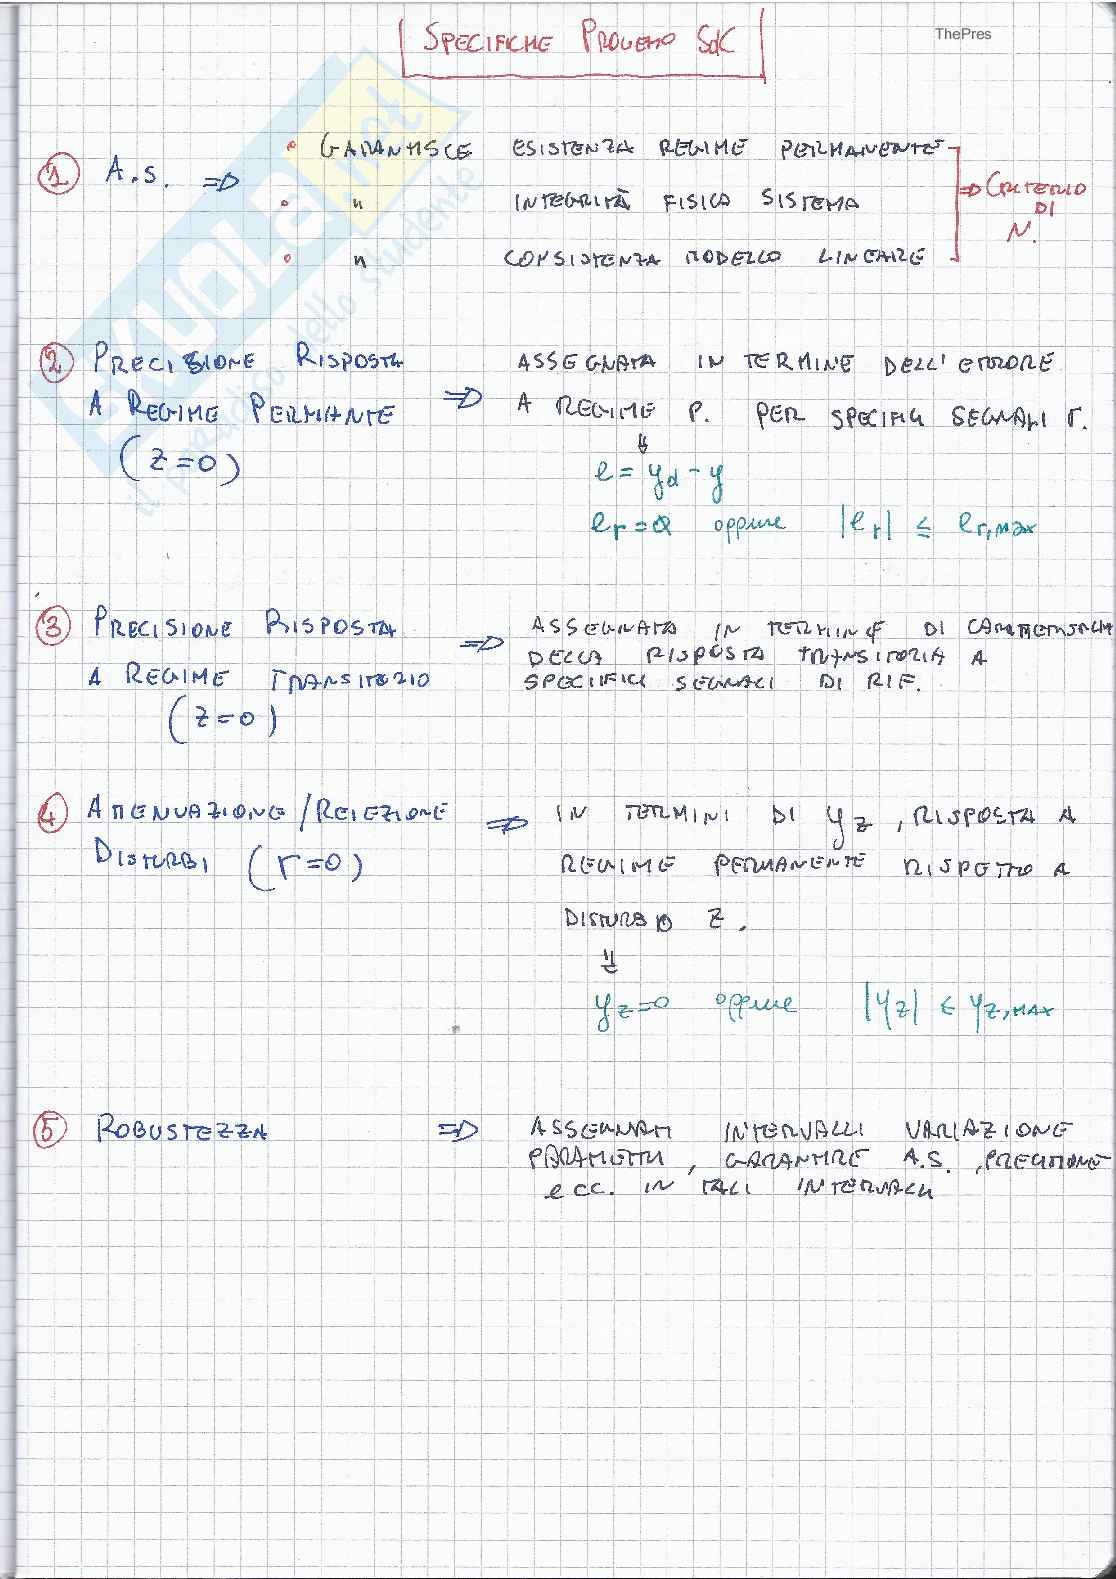 SPECIFICHE PROGETTO SdC
ThePres
① A.S. ⇒ • GARANTISCE ESISTENZA REGIME PERMANENTE
• " INTEGRITÀ FISICA SISTEMA
• " CONSISTENZA MODELLO LINEARE
⇒ CRITERIO
DI
N.
② PRECISIONE RISPOSTA
A REGIME PERMANTE
(z=0)
⇒ ASSEGNATA IN TERMINE DELL'ERRORE
A REGIME P. PER SPECIFICI SEGNALI r.
⇓
e = yd - y
er = 0 oppure |er| ≤ er,max
③ PRECISIONE RISPOSTA
A REGIME TRANSITORIO
(z=0)
⇒ ASSEGNATA IN TERMINE DI CARATTERISTICHE
DELLA RISPOSTA TRANSITORIA A
SPECIFICI SEGNALI DI RIF.
④ ATTENUAZIONE/REIEZIONE
DISTURBI (r=0)
⇒ IN TERMINI DI yz, RISPOSTA A
REGIME PERMANENTE RISPETTO A
DISTURBO z.
⇓
yz=0 oppure |yz| ≤ yz,MAX
⑤ ROBUSTEZZA
⇒ ASSEGNATI INTERVALLI VARIAZIONE
PARAMETRI, GARANTIRE A.S., PRECISIONE
ecc. IN TALI INTERVALLI
SKUOLA.net
il paradiso dello studente